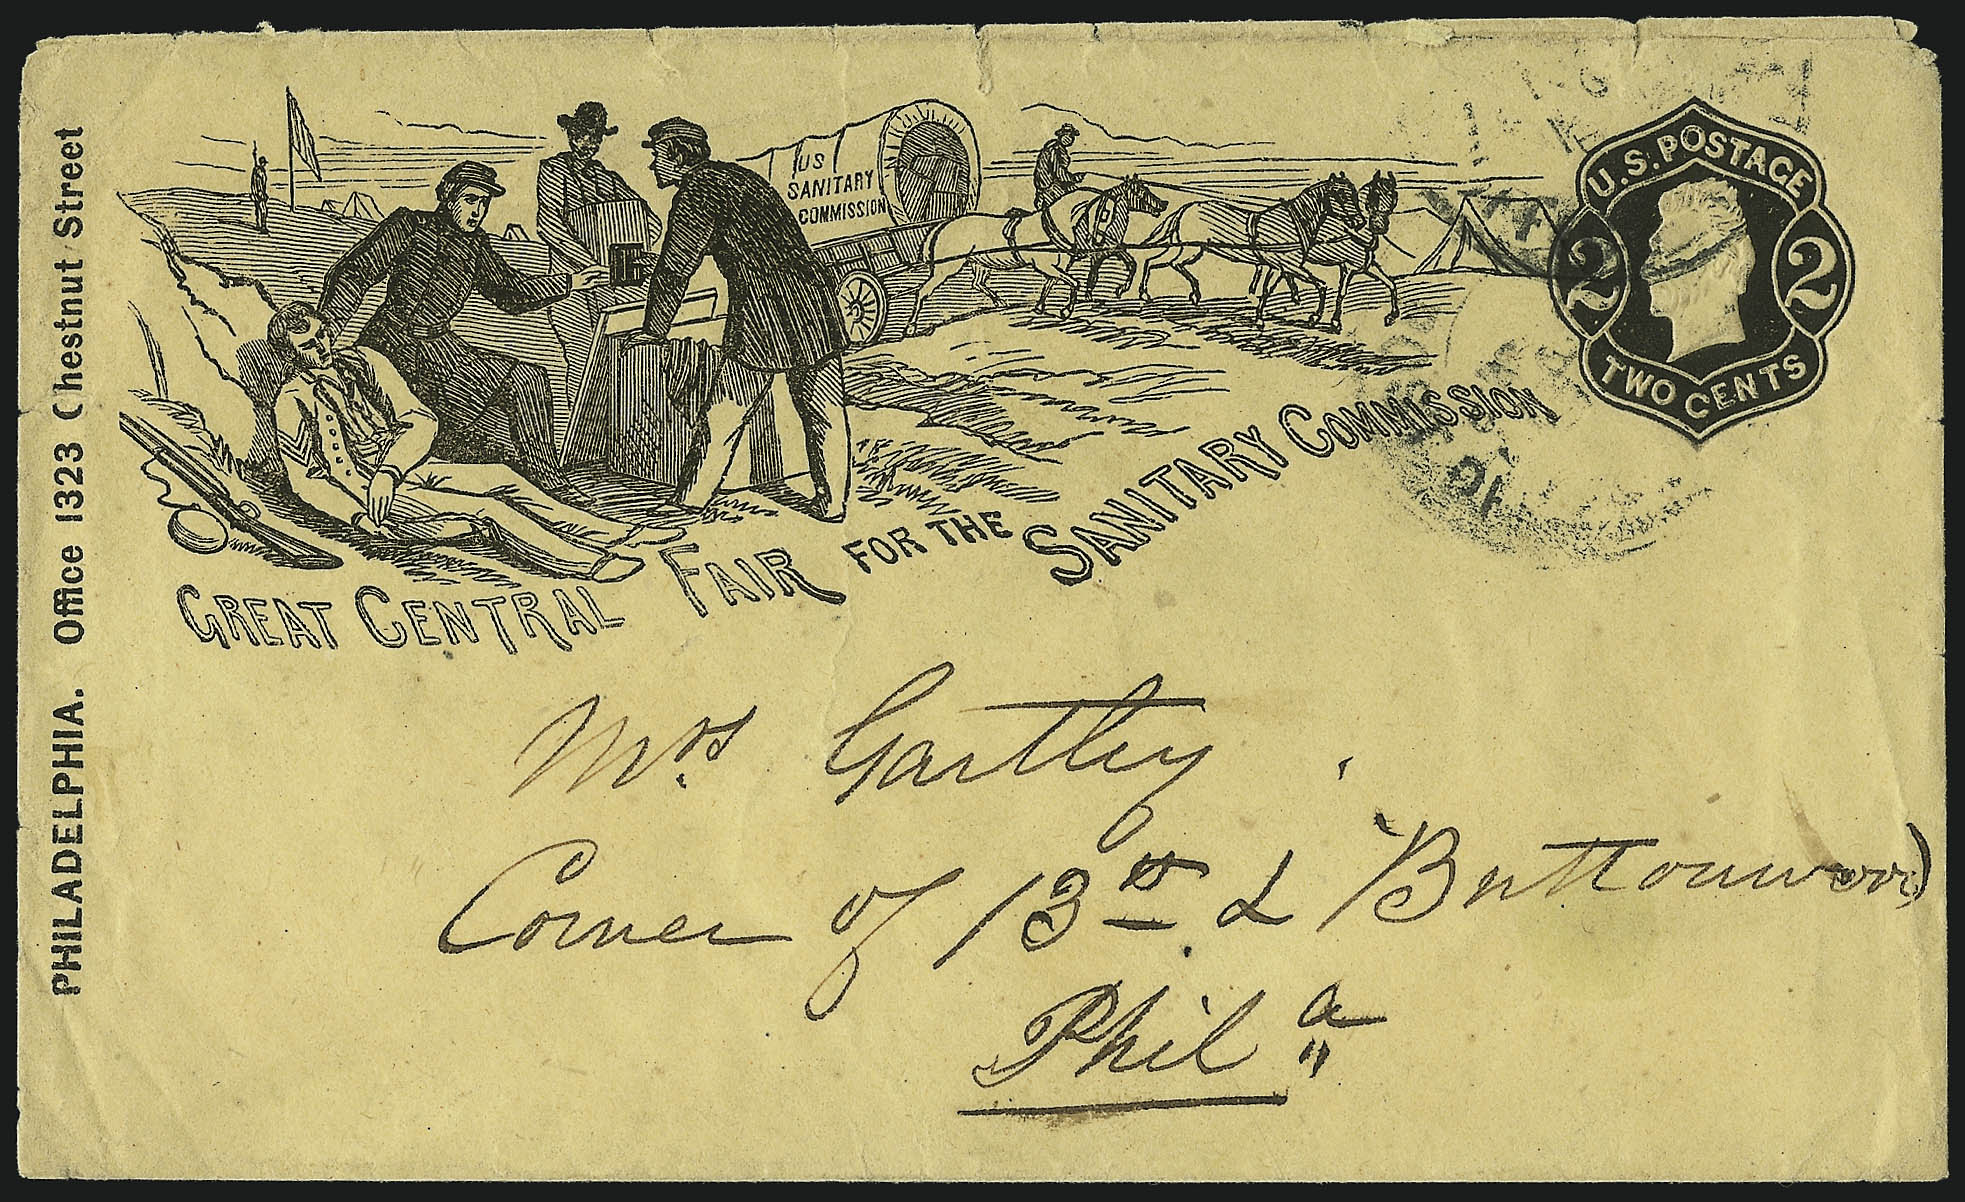 PHILADELPHIA. Office 1323 Chestnut Street
US
SANITARY
COMMISSION
U.S. POSTAGE
2 2
TWO CENTS
GREAT CENTRAL FAIR FOR THE SANITARY COMMISSION
Mrs Gartley
Corner of 13th & Buttonwood
Phila